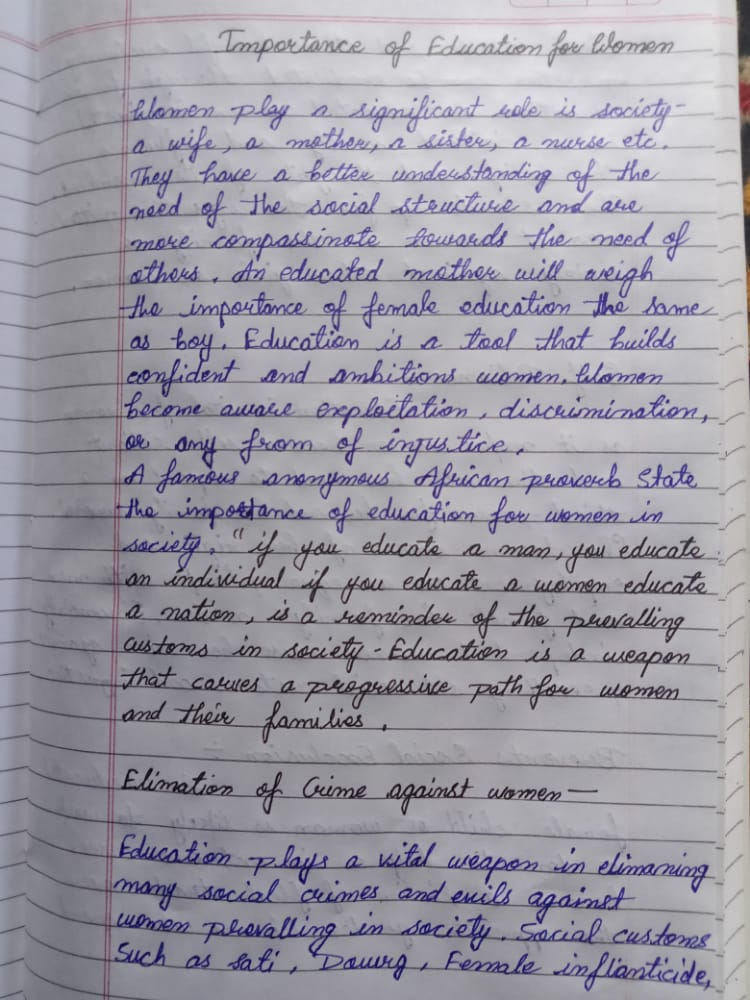 Importance of Education for Women
Women play a significant role is society-
a wife, a mother, a sister, a nurse etc.
They have a better understanding of the
need of the social structure and are
more compassinate towards the need of
others. An educated mother will weigh
the importance of female education the same
as boy. Education is a tool that builds
confident and ambitions women. Women
become aware exploitation, discrimination,
or any from of injustice.
A famous anonymous African proverb State
the importance of education for women in
society. "if you educate a man, you educate
an individual if you educate a women educate
a nation, is a reminder of the prevalling
customs in society - Education is a weapon
that carves a progressive path for women
and their families.
Elimation of Crime against women-
Education plays a vital weapon in elimaning
many social crimes and evils against
women prevalling in society. Social customs
Such as Sati, Dowrg, Female inflanticide,